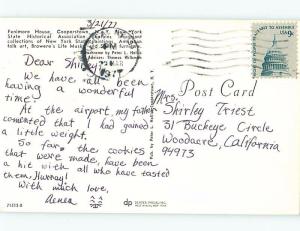 Fenimore House, Cooperstown, N.Y. New York
State Historical Association
collections of New York State
talk art, Browere's Life Masks
3/21/77
Dear Shirley
We have all been
having a wonderful
time.
At the airport, my father
comented that I had gained
a little weight.
So far, the cookies
that were made, have been
a hit with all who have tasted
them, Hurray!
With much love,
Renea
71313-B
Post Card
Mrs. Shirley Triest
51 Buckeye Circle
Woodacre, California
94973
DEXTER PRESS, INC.
WEST NYACK, NEW YORK